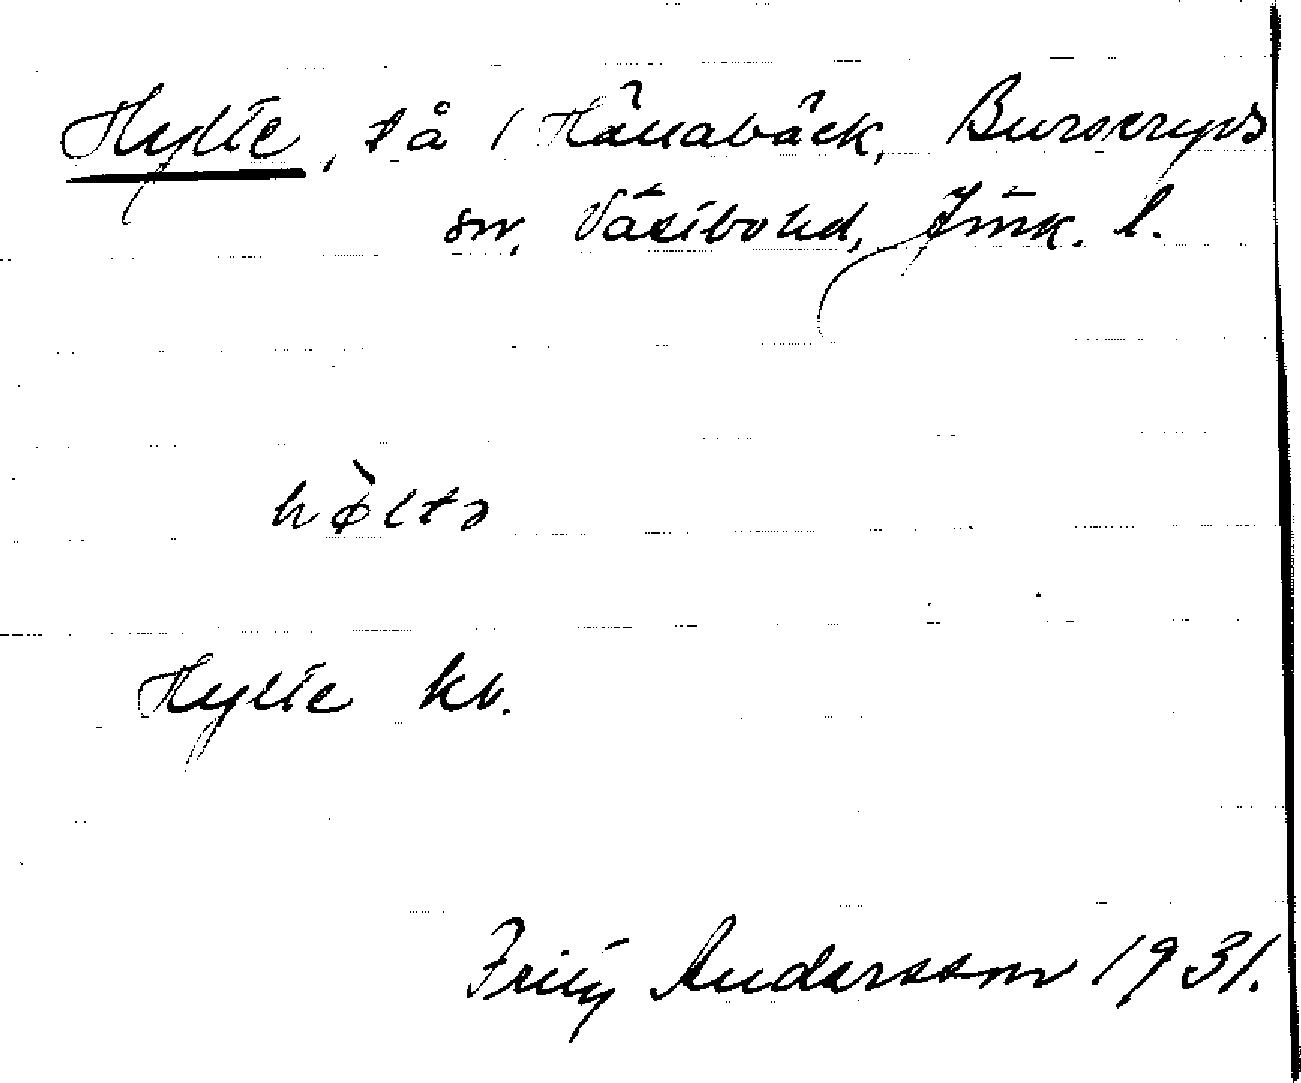 Hylte, på / Hånabäck, Burseryds
sn, Västbo hd, Jmk. l.
hø̀ltə
Hylte kb.
Fritz Andersson 1931.